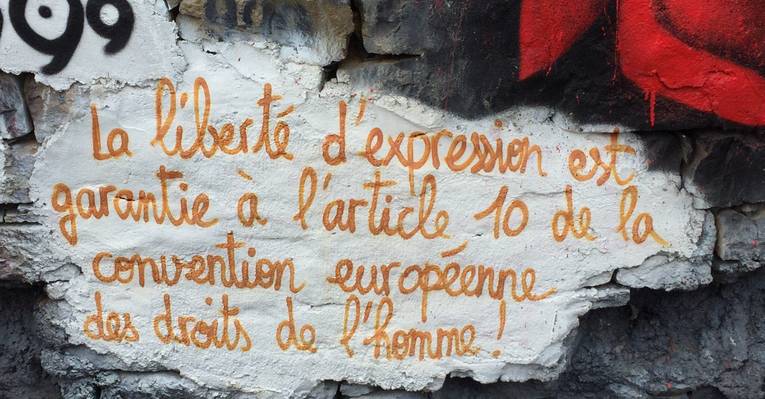 99
La liberté d'expression est
garantie à l'article 10 de la
convention européenne
des droits de l'homme!